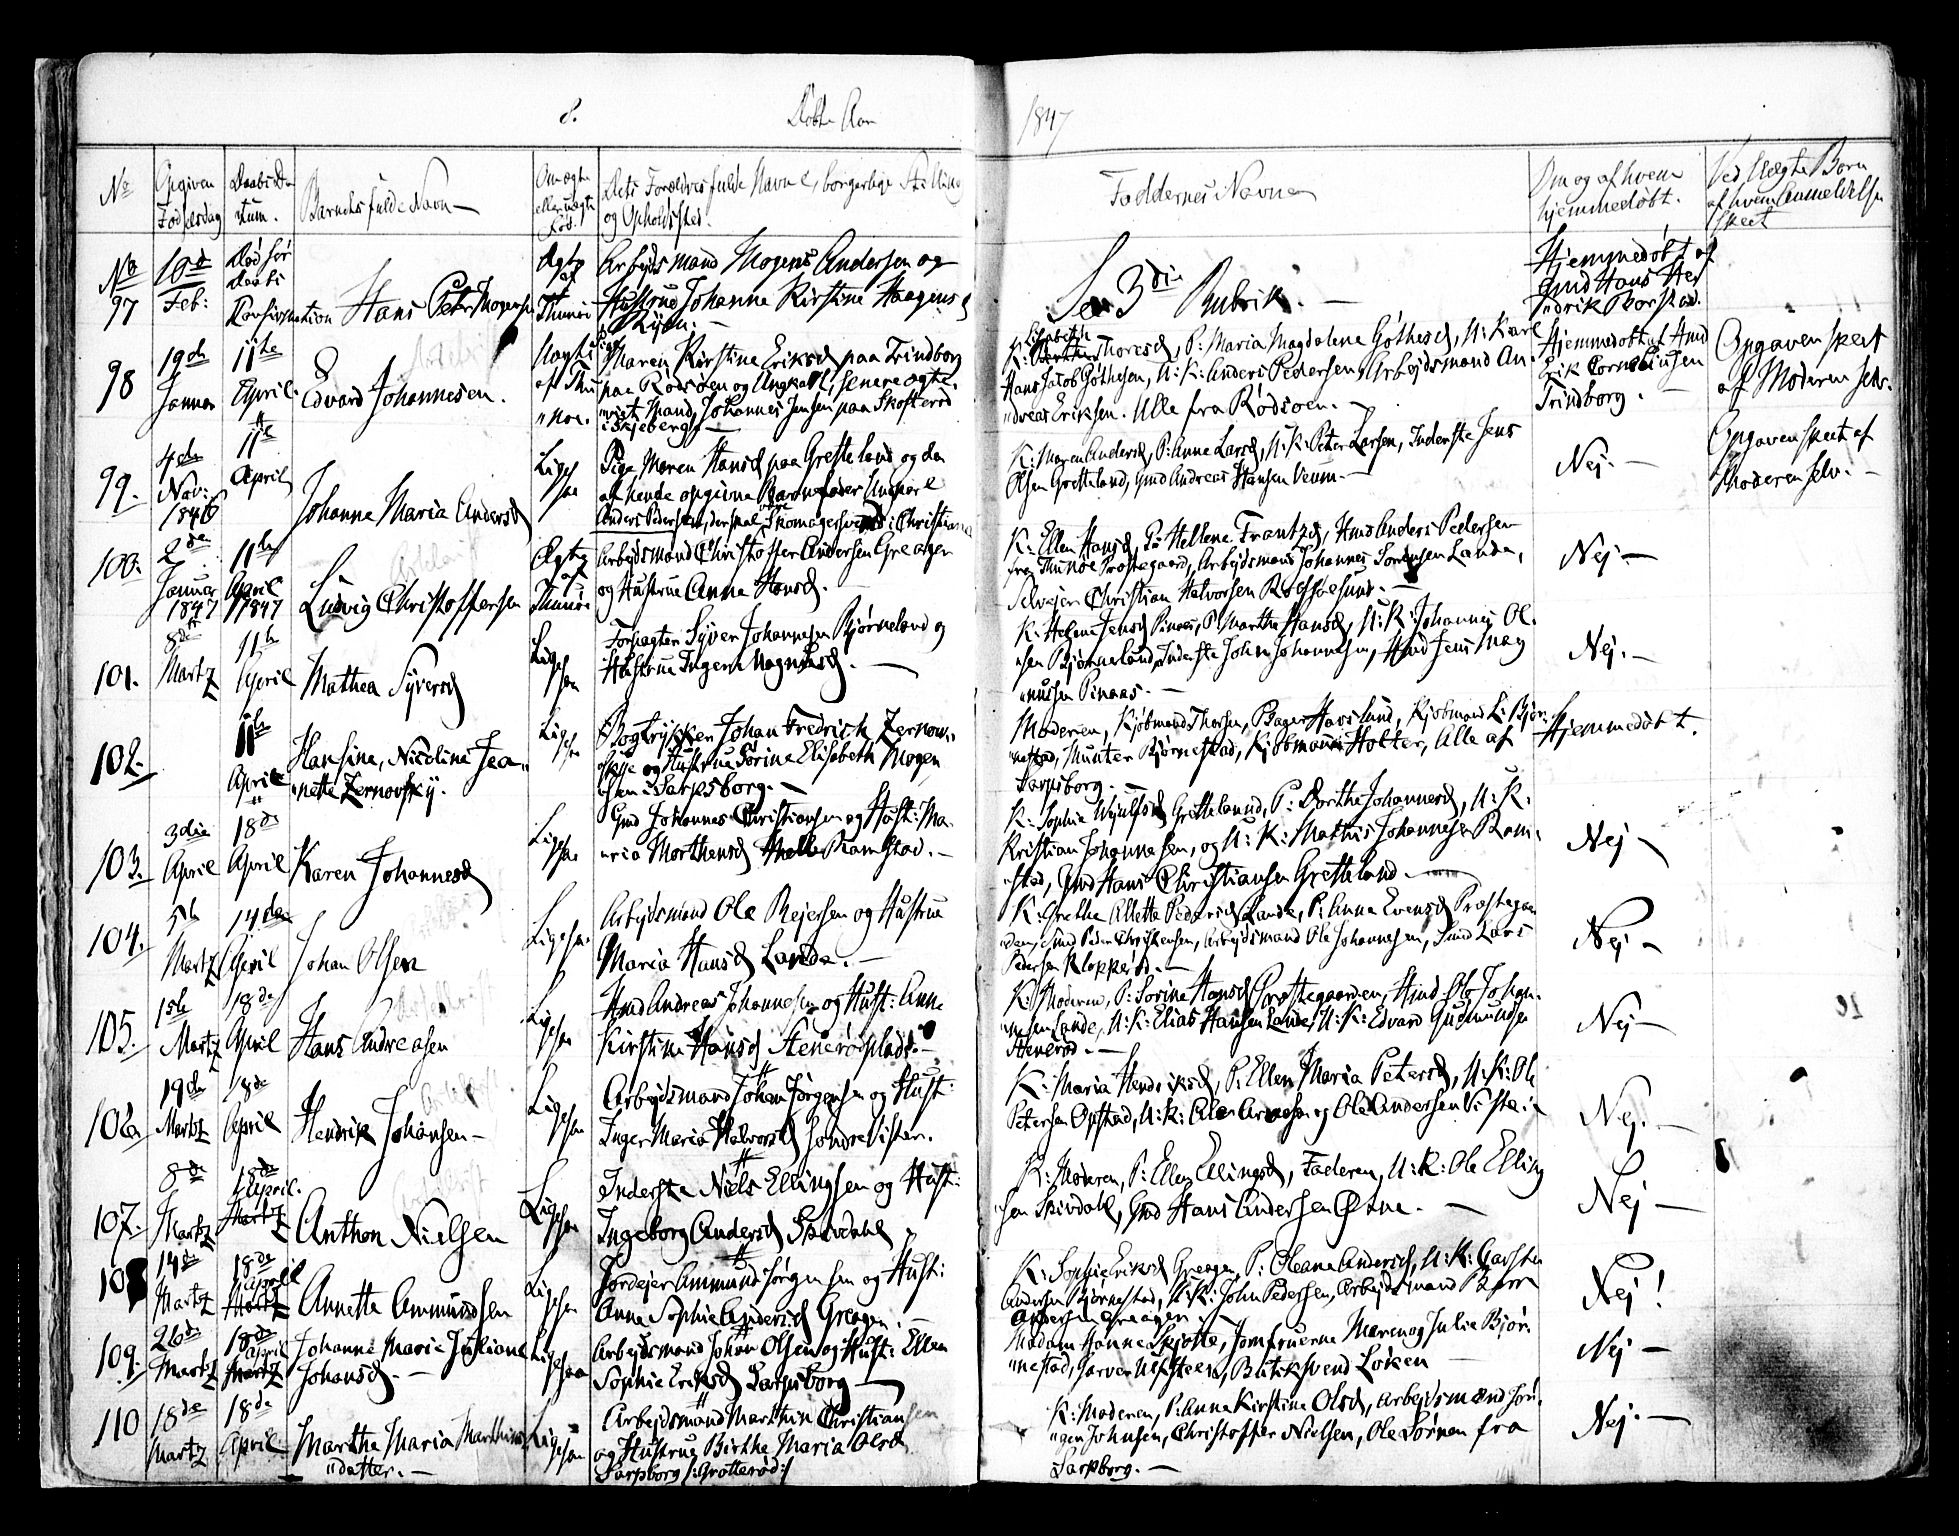 8.
Døbte Aar
1847
No
Opgiven Fødselsdag
Daabs Datum.
Barnets fulde Navn
Om ægte eller uægte Fød.
Dets Forældres fulde Navne, borgerlige Stilling og Opholdsted.
Faddernes Navne
Om og af hvem hjemmedøbt.
Ved Uægte Børn af hvem Anmeldelsen skeet
No 97
10d Feb:
Død før Daabs Confirmation
Hans Peter Mogensen
Ægte af Thunø
Arbeidsmand Mogens Andersen og
Hustrue Johanne Kirstine Haagensd
Se 3die Rubrik. —
Hjemmedøbt af
Gmd Hans Hendrik Borstad.
98
19de Januar
11te April
Edvard Johannesen.
Uægte
Maren Kirstine Eriksd paa Trindborg
paa Rødsøen og Ungkarl, senere ægteviet Mand, Johannes Jensen paa Skofterød
i Skjeberg —
Thoresd, P: Maria Magdalene Gøthesd, U: Karl
Hans Jacob Gøthesen, U: K: Anders Pedersen, Arbejdsmand Andreas Eriksen. Alle fra Rødsøen. —
Hjemmedøbt af Hmd
Erik Corneliussen
Trindborg. —
Opgaven skeet
af Moderen selv.
99.
4de Nov: 1846
11te April
Johanne Maria Andersd
Ligesaa
Pige Maren Hansd paa Gretteland og den
af hende opgivne Barnefader Ungkarl
Anders Pedersen, der skal være Skomagersvend i Christiania
K: Maren Andersd, P: Anne Larsd, U: K: Peter Larsen, Inderste Jens
Olsen Gretteland, Gmd Andreas Hansen Veum. —
Nej. —
Opgaven skeet af
Moderen selv. —
100.
2den Januar 1847
11te April 1847
Ludvig Christoffersen
Ægte af Thunø
Arbejdsmand Christoffer Andersen Greager
og Hustrue Anne Hansd. —
K: Ellen Hansd, P: Hellene Frantzd, Hmd Anders Pedersen
fra Thunøe Præstegaard, Arbejdsmand Johannes Sørensen Lande,
Selvejer Christian Halvorsen
Nej —
101.
8de Martz
11te April
Mathea Syversd
Ligesaa
Forpagter Syver Johannesen Bjørneland og
Hustrue Ingern Magnusd. —
K: Helene Jensd Pinaas, P: Marthe Hansd, U: K: Johannes Olsen Bjørneland, Inderste John Johannesen, Hmd Jens Magnussen Pinaas. —
Nej. —
102.
11te April
Hansine, Nicoline Jeanette Zernovsky.
Ligesaa
Bogtrykker Johan Fredrich Zernovskye og Hustrue Sørine Elisabeth Mogensen Sarpsborg. —
Moderen, Kjøbmand Thorsen, Bager Havslund, Kjøbmand L: Bjørnestad, Munter Bjørnestad, Kjøbmand Holter, Alle af
Sarpsborg. —
Hjemmedøbt.
103.
3die April
18de April
Karen Johannesd
Ligesaa
Gmd Johannes Christiansen og Hust: Maria Morthensd Ramstad. —
K: Sophie Gretteland, P: Dorthe Johannesd, U: K:
Kristian Johannesen, og U: K: Mathis Johannesen Ramstad, Gmd Hans Christiansen Gretteland —
Nej —
104.
5te Martz
14de April
Johan Olsen
Ligesaa
Arbejdsmand Ole Rejersen og Hustrue
Maria Hansd Lande. —
K: Grethe Allette Pedersd Lande, P: Anna Evensd Præstegaarden, Gmd Peder Christensen, Arbejdsmand Ole Johannesen, Gmd Lars
Pedersen Klopperød. —
Nej —
105.
15te Martz
18de April
Hans Andreasen
Ligesaa
Hmd Andreas Johannesen og Hust: Anne
Kirstine Hansd Stenerødplads. —
K: Moderen, P: Sørine Hansd Præstegaarden, Hmd Ole Johannesen Lande, U: K: Elias Hansen Lande, U: K: Edvard Gudmundsen
Stenerød. —
Nej —
106
19de Martz
18de April
Hendrik Johansen —
Ligesaa
Arbejdsmand Johan Jørgensen og Hust:
Inger Maria Halvorsd Søndre Vister.
K: Maria Hendriksd, P: Ellen Maria Petersd, U: K: Ole
Petersen Opstad, U: K: og Ole Andersen Viste
Nej. —
107.
8de Martz
18de April. Martz
Anthon Nielsen
Ligesaa
Inderste Niels Ellingsen og Hust:
Ingeborg Andersd Skivdahl
K: Moderen, P: Ellen Ellingsd, Faderen, U: K: Ole Ellingsen Skivdahl, Gmd Hans Andersen Østne. —
Nej —
108
14de Martz
18de April Martz
Annette Ammundsen
Ligesaa
Jordejer Ammund Jørgensen og Hust:
Anne Sophie Andersd Greagen. —
K: Sophie Eriksd Greagen, P: Oleane Andersd, U: K: Carsten
Andersen Bjørnestad, U: K: John Pedersen, Arbejdsmand Bjørn
Andersen Greager.
Nej!
109.
26de Martz
18de April Martz
Johanne Marie Juliane Johansd. —
Ligesaa
Arbejdsmand Johan Olsen og Hust: Ellen
Sophie Eriksd Sarpsborg —
Madam Hanne Skjøtte, Jomfruerne Maren og Julie Bjørnestad, Garver Ulfsteen, Butiksvend Løken —
Nej —
110
18de Martz
18de April
Marthe Maria Marthinsdatter. —
Ligesaa
Arbejdsmand Marthin Christiansen
og Hustrue Birthe Maria Olsd
Sarpsborg /: Grotterød:/
K: Moderen, P: Anne Kirstine Olsd, Arbejdsmænd Jørgen Johnsen, Christoffer Nielsen, Ole Sørnen fra
Sarpborg. —
Nej. —